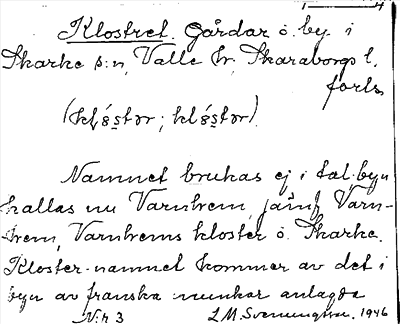 Klostret. Gårdar o. by i
Skarke s:n, Valle hr, Skaraborgs l.
forts.
Namnet brukas ej i tal. byn
kallas nu Varnhem, jämf. Varn-
hem, Varnhems kloster o. Skarke.
Kloster-namnet kommer av det i
byn av franska munkar anlagda
N:r 3 L.M. Svennungsson. 1946